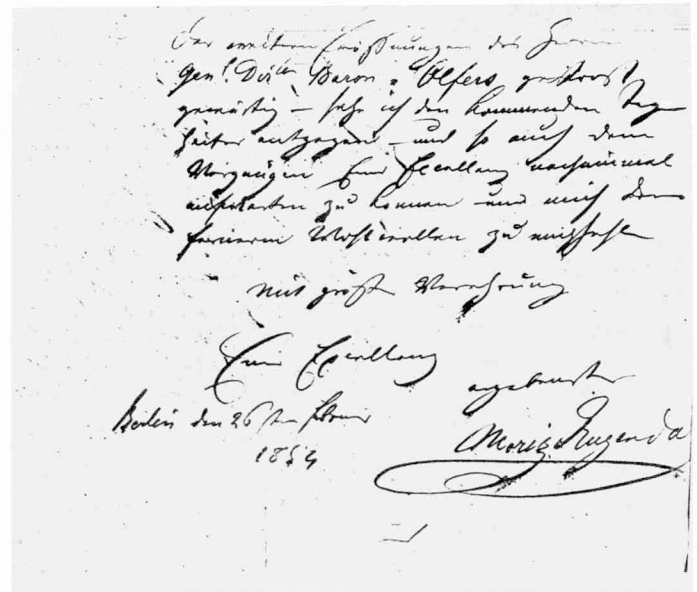 Der weitern Eröffnungen des Herrn
Genl. Dirten Baron v Olfers getrost
gewärtig – sehe ich den kommenden Tagen
heiter entgegen – und so auch dem
Vergnügen Eur Excellenz nocheinmal
aufwarten zu können und mich dem
fernern Wohlwollen zu empfehlen
mit größter Verehrung
Eurer Excellenz
ergebenster
Berlin den 26sten Februar
Moriz Rugendas
1854